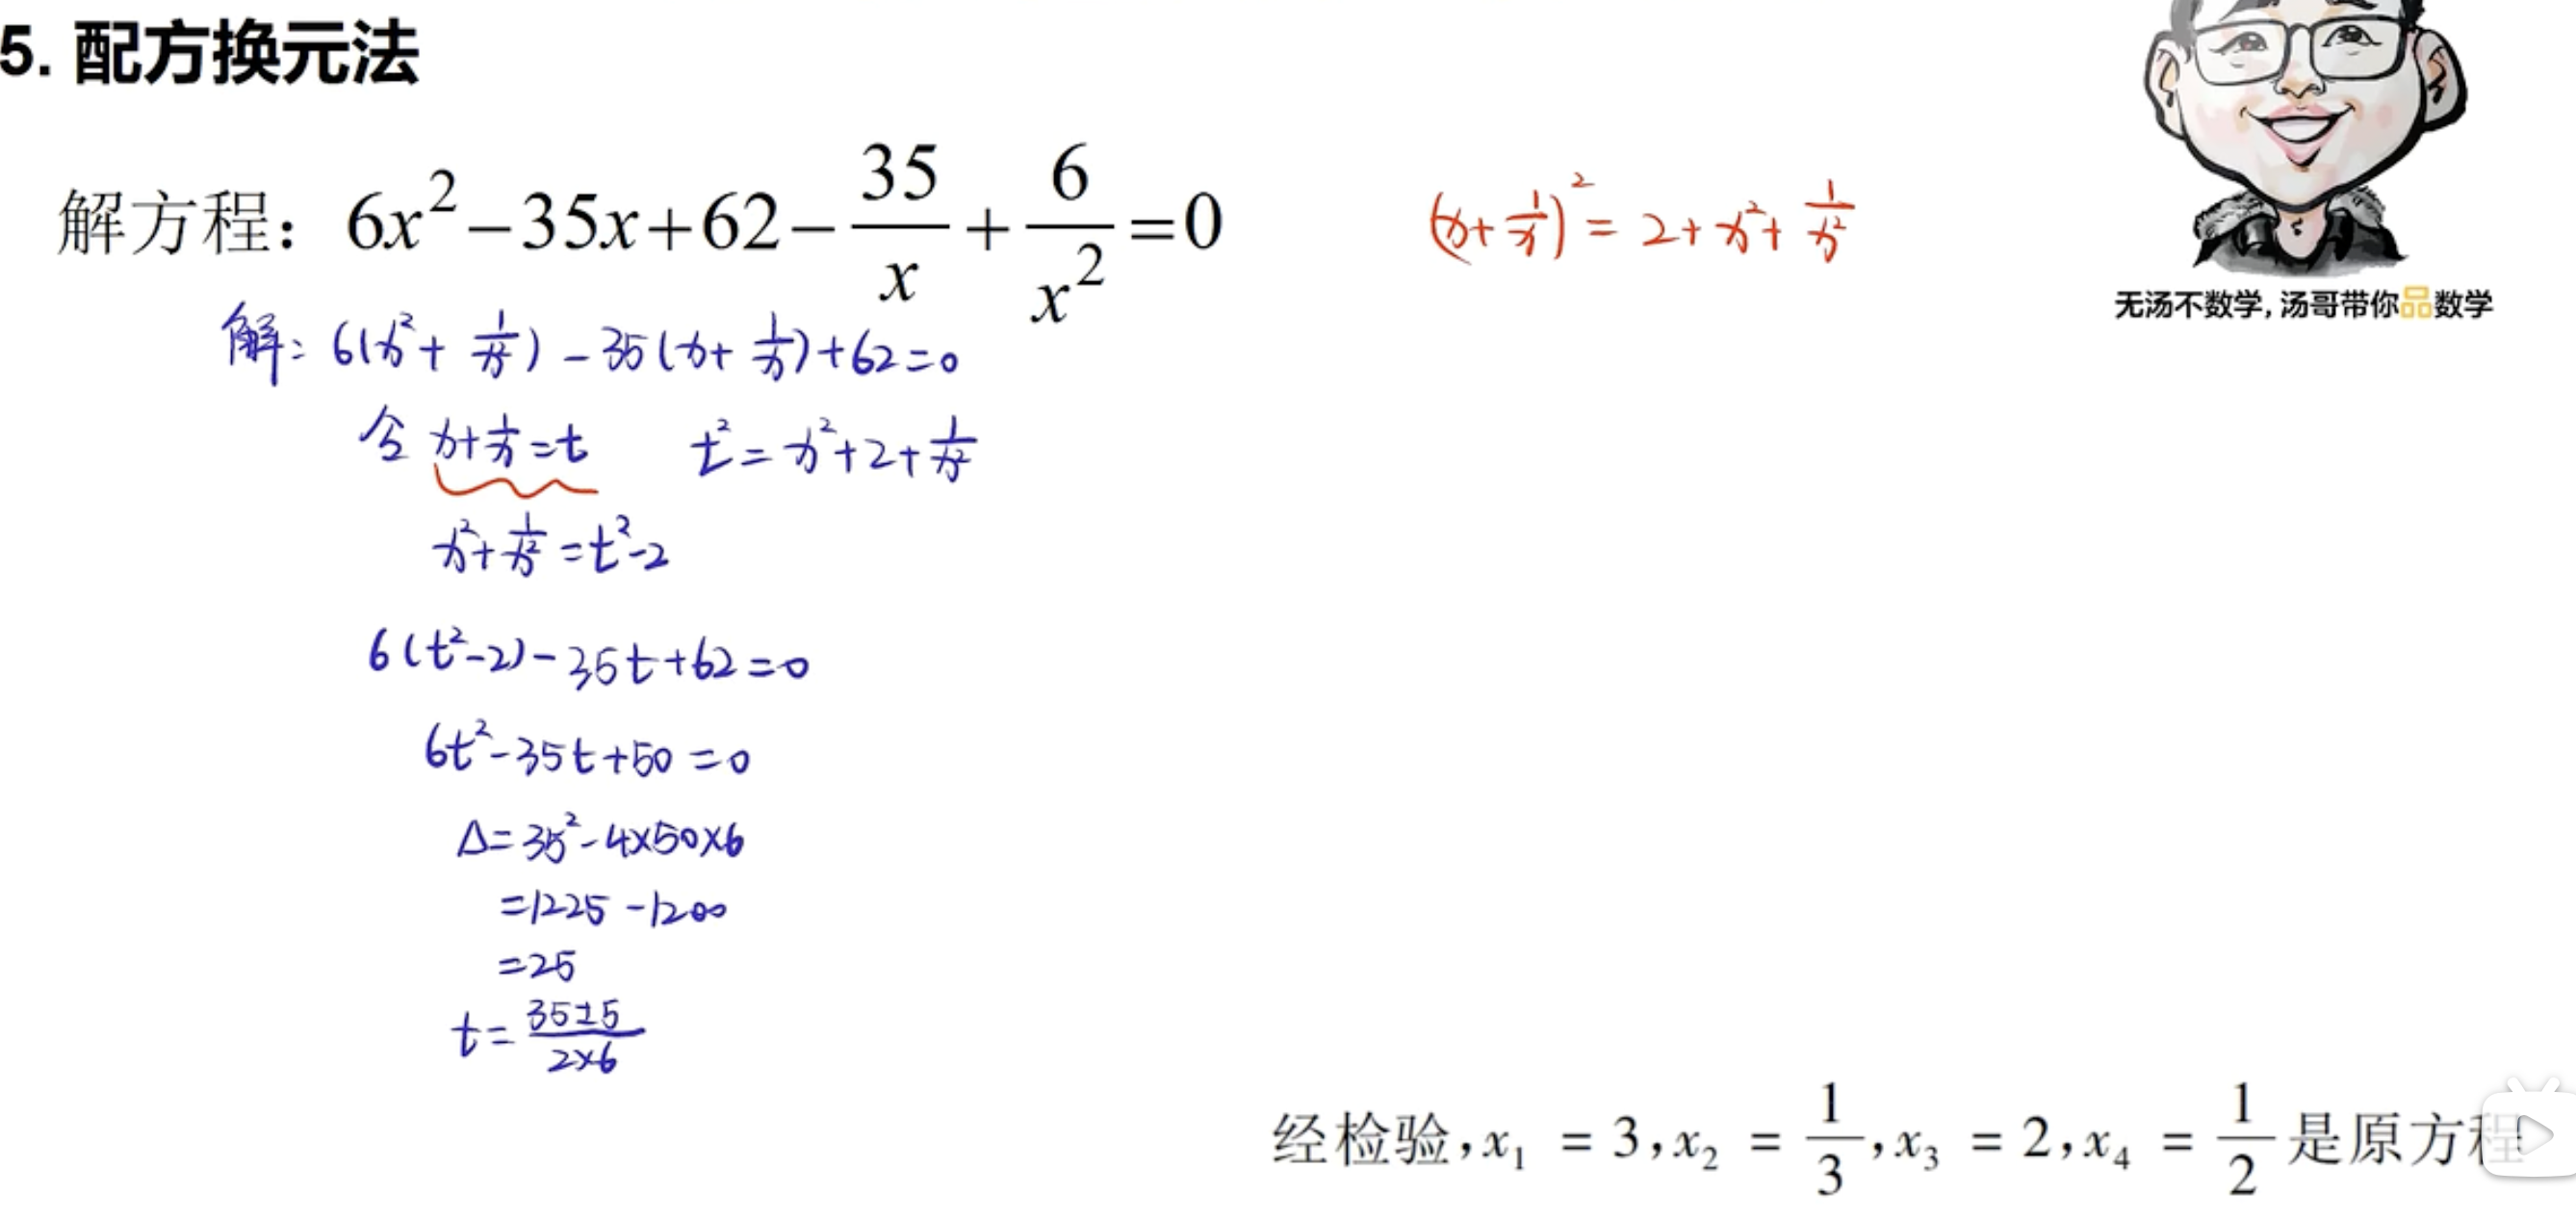 5. 配方换元法
解方程：6x² − 35x + 62 − 35/x + 6/x² = 0
(x + 1/x)² = 2 + x² + 1/x²
无汤不数学, 汤哥带你品数学
解: 6(x² + 1/x²) − 35(x + 1/x) + 62 = 0
令 x + 1/x = t   t² = x² + 2 + 1/x²
x² + 1/x² = t² − 2
6(t² − 2) − 35t + 62 = 0
6t² − 35t + 50 = 0
Δ = 35² − 4×50×6
= 1225 − 1200
= 25
t = (35±5)/(2×6)
经检验, x₁ = 3, x₂ = 1/3, x₃ = 2, x₄ = 1/2 是原方程